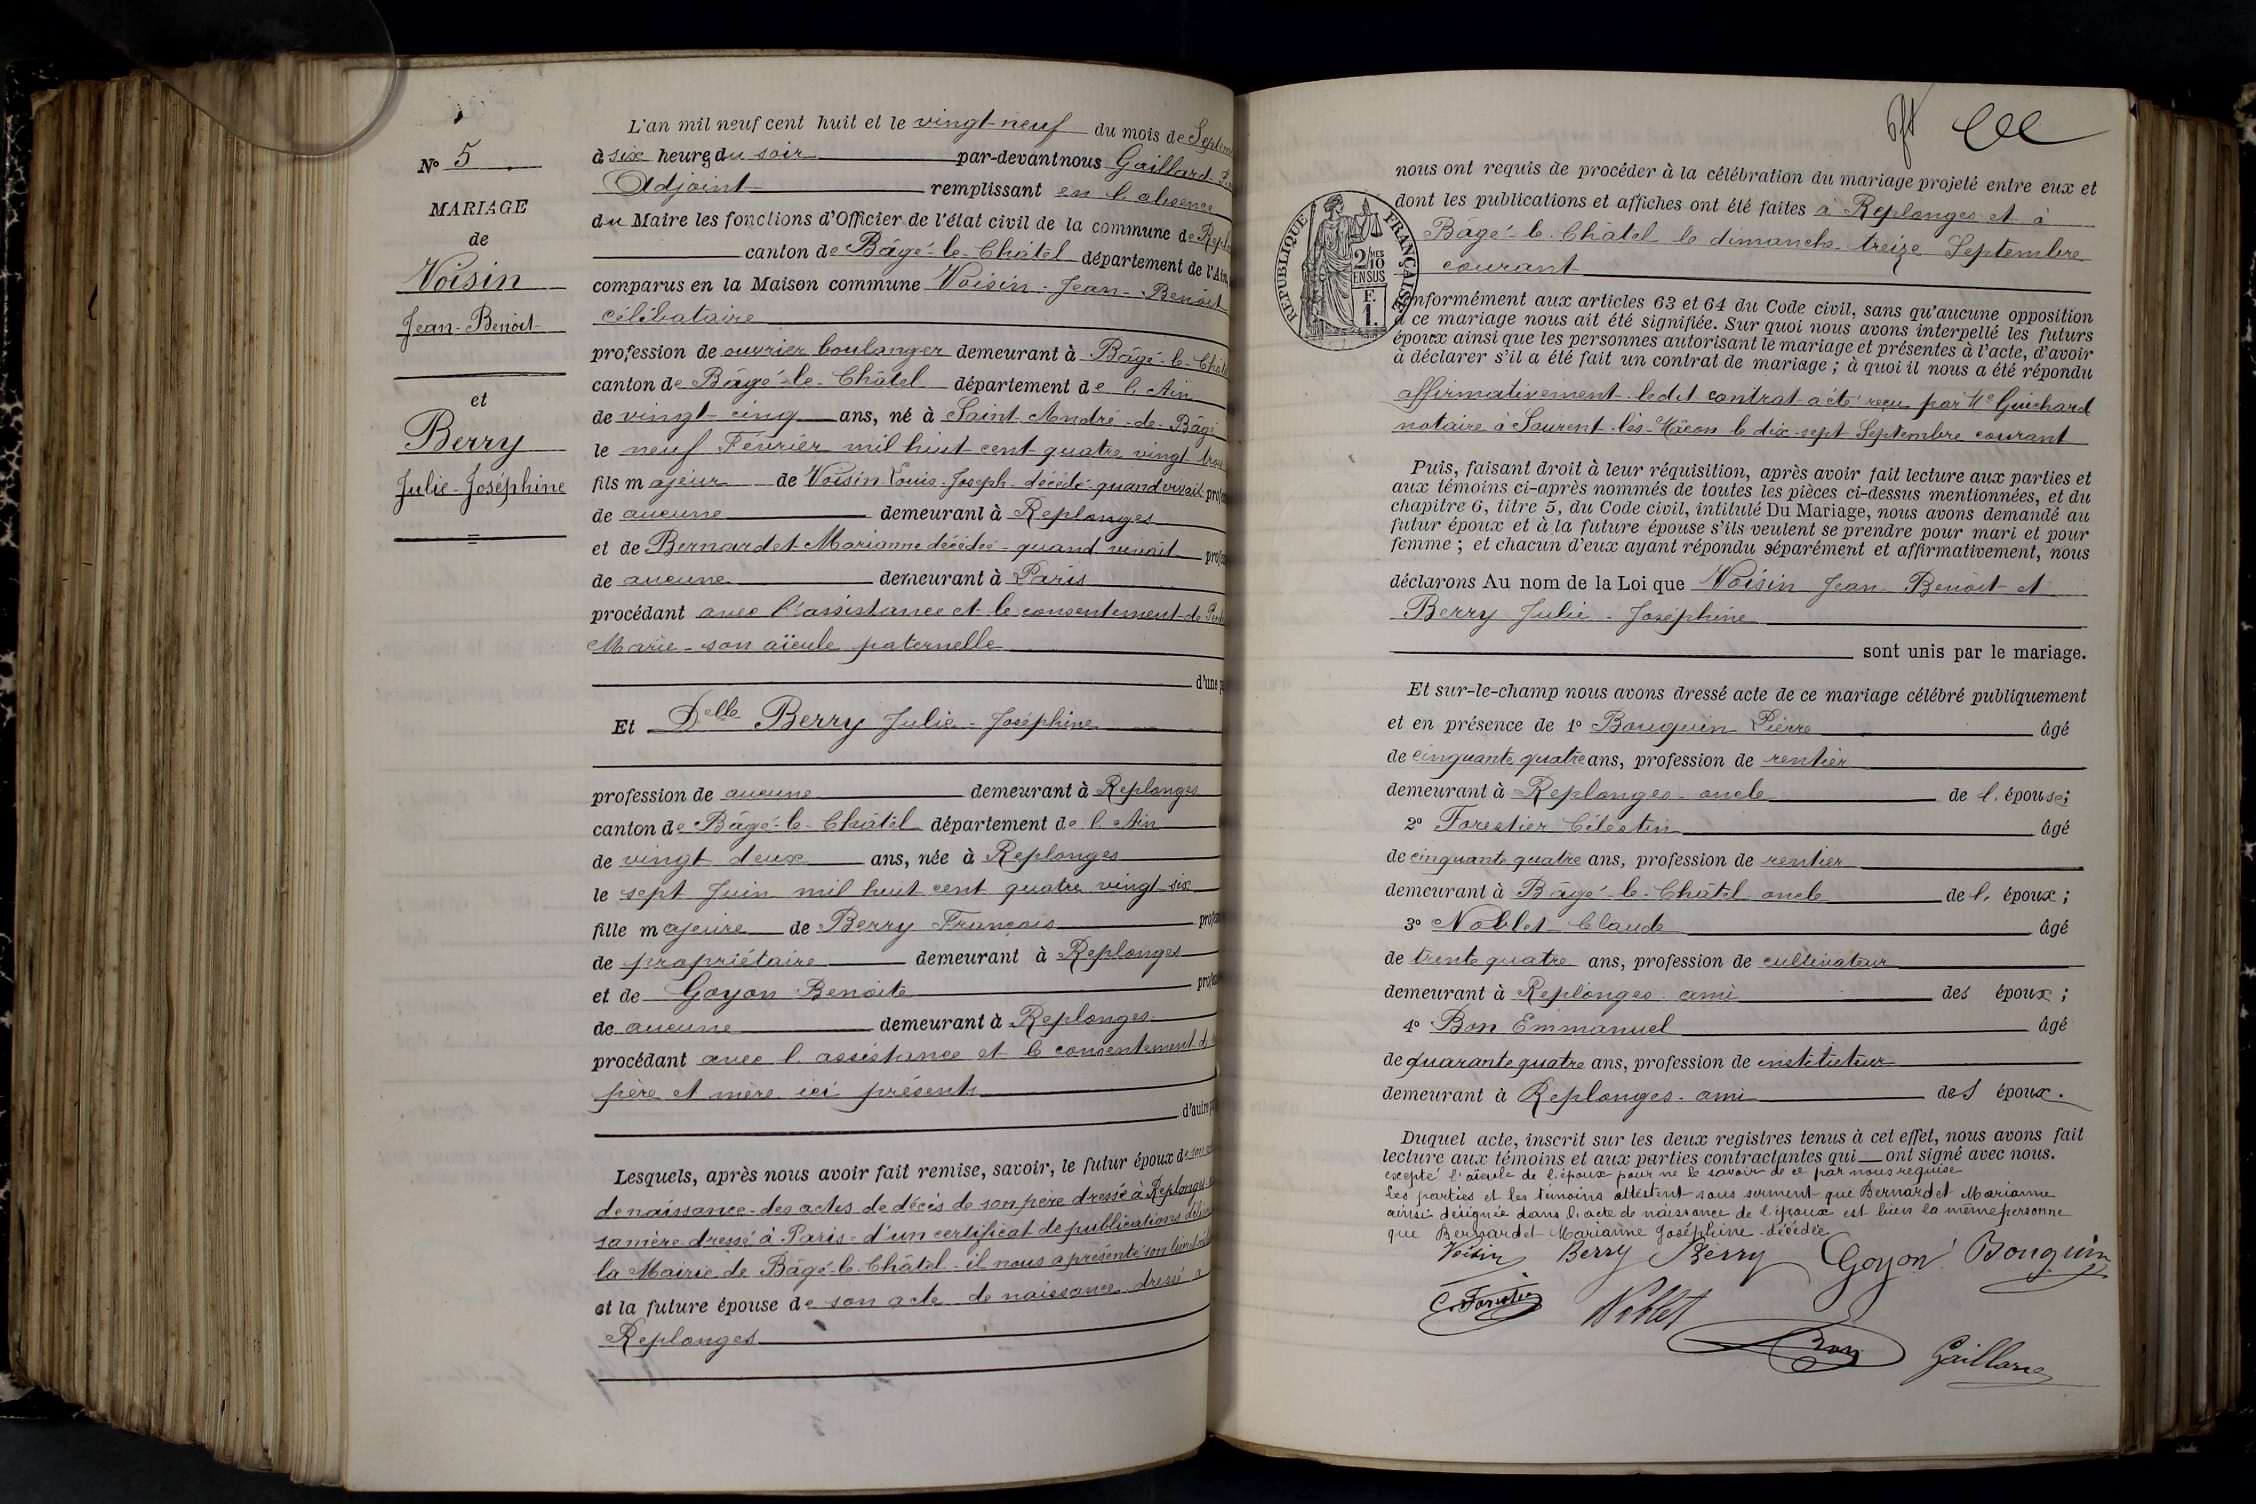 N° 5
MARIAGE
de
Voisin
Jean-Benoit
et
Berry
Julie-Joséphine
L'an mil neuf cent huit et le vingt-neuf du mois de Septem
à six heures du soir par-devant nous Gaillard
Adjoint remplissant en l'absence
du Maire les fonctions d'Officier de l'état civil de la commune de Repl
canton de Bâgé-le-Châtel département de l'Ain
comparus en la Maison commune Voisin-Jean-Benoit
célibataire
profession de ouvrier boulanger demeurant à Bâgé-le-Châtel
canton de Bâgé-le-Châtel département de l'Ain
de vingt-cinq ans, né à Saint-André-de-Bâgé
le neuf Février mil huit cent quatre vingt trois
fils majeur de Voisin Louis-Joseph-décédé-quand vivait profes
de aucune demeurant à Replonges
et de Bernardet-Marianne décédée-quand vivait profes
de aucune demeurant à Paris
procédant avec l'assistance et le consentement-de
Marie-son aïeule paternelle
d'une p
Et Delle Berry Julie-Joséphine
profession de aucune demeurant à Replonges
canton de Bâgé-le-Châtel département de l'Ain
de vingt deux ans, née à Replonges
le sept Juin mil huit cent quatre vingt-six
fille majeure de Berry François profes
de propriétaire demeurant à Replonges
et de Goyon Benoite profes
de aucune demeurant à Replonges
procédant avec l'assistance et le consentement de
père et mère ici présents
d'autre p
Lesquels, après nous avoir fait remise, savoir, le futur époux de son
de naissance-des actes de décès de son père dressé à Replonges
sa mère dressé à Paris-d'un certificat de publications
la Mairie de Bâgé-le-Châtel-il nous a présenté son livret
et la future épouse de son acte de naissance dressé à
Replonges
nous ont requis de procéder à la célébration du mariage projeté entre eux et
dont les publications et affiches ont été faites à Replonges et à
Bâgé-le-Châtel le dimanche treize Septembre
courant
RÉPUBLIQUE FRANÇAISE
2 MES 10
EN SUS
F.
1.
onformément aux articles 63 et 64 du Code civil, sans qu'aucune opposition
à ce mariage nous ait été signifiée. Sur quoi nous avons interpellé les futurs
époux ainsi que les personnes autorisant le mariage et présentes à l'acte, d'avoir
à déclarer s'il a été fait un contrat de mariage ; à quoi il nous a été répondu
affirmativement-ledit contrat a été reçu par Me Guichard
notaire à Saurent-lès-Mâcon le dix-sept Septembre courant
Puis, faisant droit à leur réquisition, après avoir fait lecture aux parties et
aux témoins ci-après nommés de toutes les pièces ci-dessus mentionnées, et du
chapitre 6, titre 5, du Code civil, intitulé Du Mariage, nous avons demandé au
futur époux et à la future épouse s'ils veulent se prendre pour mari et pour
femme ; et chacun d'eux ayant répondu séparément et affirmativement, nous
déclarons Au nom de la Loi que Voisin Jean-Benoit et
Berry Julie-Joséphine
sont unis par le mariage.
Et sur-le-champ nous avons dressé acte de ce mariage célébré publiquement
et en présence de 1° Bouquin Pierre âgé
de cinquante quatre ans, profession de rentier
demeurant à Replonges-oncle de l'épouse;
2° Forestier Célestin âgé
de cinquante quatre ans, profession de rentier
demeurant à Bâgé-le-Châtel oncle de l'époux ;
3° Noblet Claude âgé
de trente quatre ans, profession de cultivateur
demeurant à Replonges-ami des époux ;
4° Bon Emmanuel âgé
de quarante quatre ans, profession de instituteur
demeurant à Replonges-ami des époux.
Duquel acte, inscrit sur les deux registres tenus à cet effet, nous avons fait
lecture aux témoins et aux parties contractantes qui ont signé avec nous.
excepté l'aïeule de l'époux pour ne le savoir de ce par nous requise
Les parties et les témoins attestent sous serment que Bernardet Marianne
ainsi désignée dans l'acte de naissance de l'époux est bien la même personne
que Bernardet Marianne Joséphine-décédée
Voisin Berry Berry Goyon Bouquin
C. Forestier Noblet
Bon Gaillard